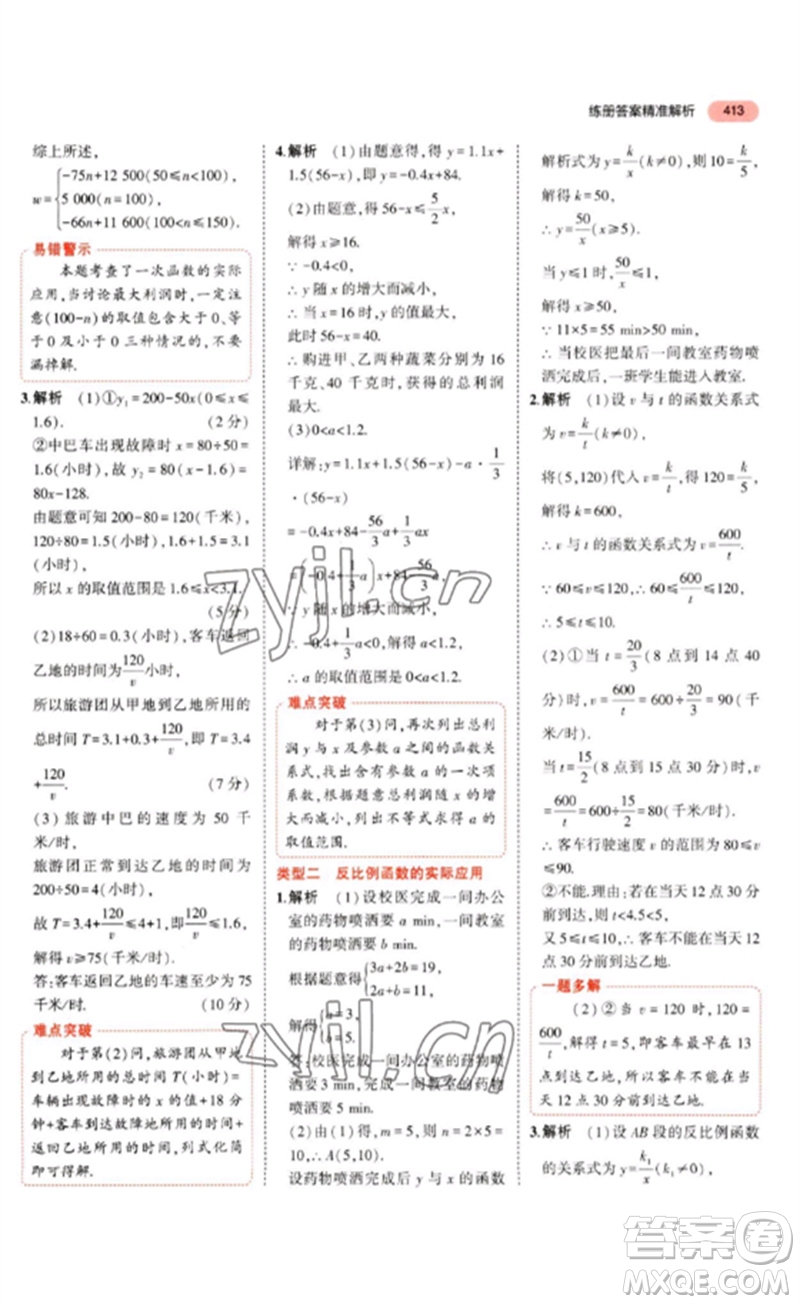 练册答案精准解析 413
综上所述,
w={-75n+12 500(50≤n<100),
5 000(n=100),
-66n+11 600(100<n≤150).
易错警示
本题考查了一次函数的实际
应用,当讨论最大利润时,一定注
意(100-n)的取值包含大于0、等
于0及小于0三种情况的,不要
漏掉解.
3.解析 (1)①y₁=200-50x(0≤x≤
1.6). (2分)
②中巴车出现故障时x=80÷50=
1.6(小时),故y₂=80(x-1.6)=
80x-128.
由题意可知200-80=120(千米),
120÷80=1.5(小时),1.5+1.6=3.1
(小时),
所以x的取值范围是1.6≤x<3.1.
(5分)
(2)18÷60=0.3(小时),客车返回
乙地的时间为120/v小时,
所以旅游团从甲地到乙地所用的
总时间T=3.1+0.3+120/v,即T=3.4
+120/v. (7分)
(3)旅游中巴的速度为50千
米/时,
旅游团正常到达乙地的时间为
200÷50=4(小时),
故T=3.4+120/v≤4+1,即120/v≤1.6,
解得v≥75(千米/时).
答:客车返回乙地的车速至少为75
千米/时. (10分)
难点突破
对于第(2)问,旅游团从甲地
到乙地所用的总时间T(小时)=
车辆出现故障时的x的值+18分
钟+客车到达故障地所用的时间+
返回乙地的时间,列式化简即
可得解.
4.解析 (1)由题意得,得y=1.1x+
1.5(56-x),即y=-0.4x+84.
(2)由题意,得56-x≤5/2x,
解得x≥16.
∵-0.4<0,
∴y随x的增大而减小,
∴当x=16时,y的值最大,
此时56-x=40.
∴购进甲、乙两种蔬菜分别为16
千克、40千克时,获得的总利润
最大.
(3)0<a<1.2.
详解:y=1.1x+1.5(56-x)-a·1/3
·(56-x)
=-0.4x+84-56/3a+1/3ax
=(-0.4+1/3a)x+84-56/3a.
∵y随x的增大而减小,
∴-0.4+1/3a<0,解得a<1.2.
∴a的取值范围是0<a<1.2.
难点突破
对于第(3)问,再次列出总利
润y与x及参数a之间的函数关
系式,找出含有参数a的一次项
系数,根据题意总利润随x的增
大而减小,列出不等式,求出a的
取值范围.
类型二 反比例函数的实际应用
1.解析 (1)设校医完成一间办公
室的药物喷洒要a min,一间教室
的药物喷洒要b min.
根据题意得{3a+2b=19,
2a+b=11,
解得{a=3,
b=5.
答:校医完成一间办公室的药物喷
洒要3 min,完成一间教室的药物
喷洒要5 min.
(2)由(1)得,m=5,则n=2×5=
10,∴A(5,10).
设药物喷洒完成后y与x的函数
解析式为y=k/x(k≠0),则10=k/5,
解得k=50,
∴y=50/x(x≥5).
当y≤1时,50/x≤1,
解得x≥50.
∵11×5=55 min>50 min,
∴当校医把最后一间教室药物喷
洒完成后,一班学生能进入教室.
2.解析 (1)设v与t的函数关系式
为v=k/t(k≠0),
将(5,120)代入v=k/t,得120=k/5,
解得k=600,
∴v与t的函数关系式为v=600/t.
∵60≤v≤120,∴60≤600/t≤120,
∴5≤t≤10.
(2)①当t=20/3(8点到14点40
分)时,v=600/t=600÷20/3=90(千
米/时).
当t=15/2(8点到15点30分)时,v
=600/t=600÷15/2=80(千米/时).
∴客车行驶速度v的范围为80≤v
≤90.
②不能.理由:若客车在当天12点
前到达,则t<4.5<5,
又5≤t≤10,∴客车不能在当天12
点30分前到达乙地.
一题多解
(2)②当v=120时,120=
600/t,解得t=5,即客车最早在13
点到达乙地,所以客车不能在当
天12点30分前到达乙地.
3.解析 (1)设AB段的反比例函数
的关系式为y=k₁/x(k₁≠0),
zyjl.cn
zyjl.cn
答案卷
MXQE.COM